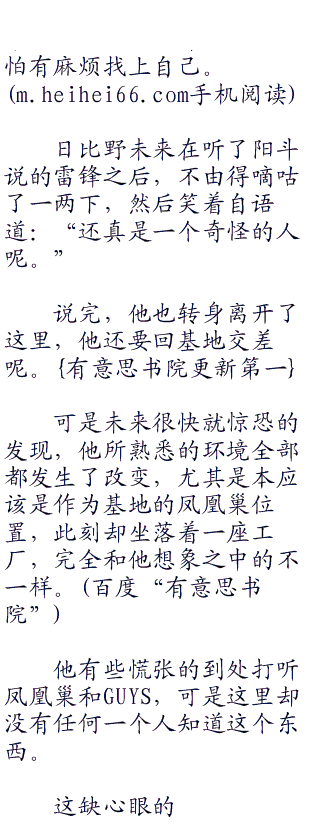 怕有麻烦找上自己。
(m.heihei66.com手机阅读)
日比野未来在听了阳斗
说的雷锋之后，不由得嘀咕
了一两下，然后笑着自语
道：“还真是一个奇怪的人
呢。”
说完，他也转身离开了
这里，他还要回基地交差
呢。{有意思书院更新第一}
可是未来很快就惊恐的
发现，他所熟悉的环境全部
都发生了改变，尤其是本应
该是作为基地的凤凰巢位
置，此刻却坐落着一座工
厂，完全和他想象之中的不
一样。(百度“有意思书
院”)
他有些慌张的到处打听
凤凰巢和GUYS，可是这里却
没有任何一个人知道这个东
西。
这缺心眼的